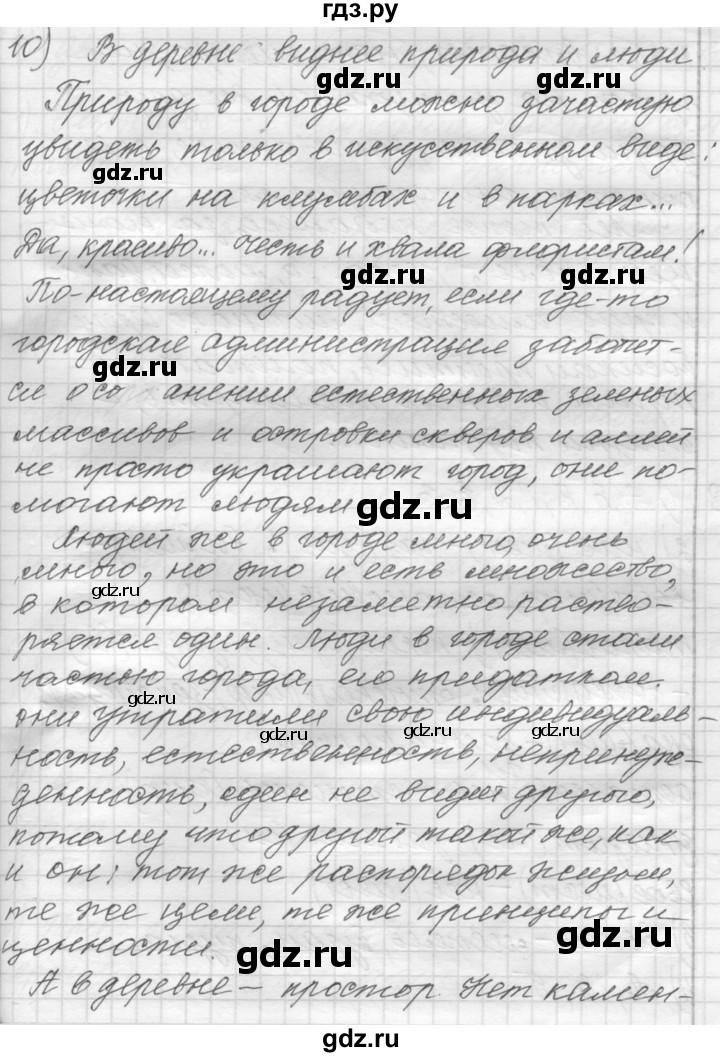 гдз.ру
10) В деревне виднее природа и люди
gdz.ru gdz.ru
Природу в городе можно зачастую
увидеть только в искусственном виде:
gdz.ru gdz.ru
цветочки на клумбах и в парках...
Да, красиво... честь и хвала флористам!
gdz.ru gdz.ru
По-настоящему радует, если где-то
городская администрация заботит-
gdz.ru
ся о со анении естественных зеленых
массивов и островки скверов и аллей
не просто украшают город, они по-
могают людям
gdz.ru
Людей же в городе много, очень
много, но это и есть множество,
gdz.ru
в котором незаметно раство-
ряется один. Люди в городе стали
частью города, его придатком.
gdz.ru
они утратили свою индивидуаль-
gdz.ru gdz.ru
ность, естественность, непринуж-
денность, один не видит другого,
потому что другой такой же, как
и он: тот же распорядок жизни,
те же цели, те же принципы и
ценности.
gdz.ru gdz.ru
А в деревне – простор. Нет камен-
gdz.ru